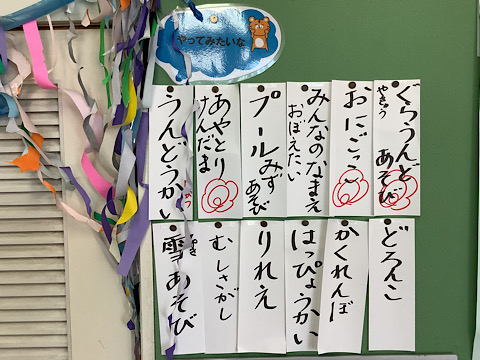 やってみたいな
ぐらうんど あそび
やきゅう
おにごっこ
みんなのなまえ
おぼえたい
プールみずあそび
あやとり
けんだま
うんどうかい
どろんこ
かくれんぼ
はっぴょうかい
りれえ
むしさがし
雪あそび
ゆき